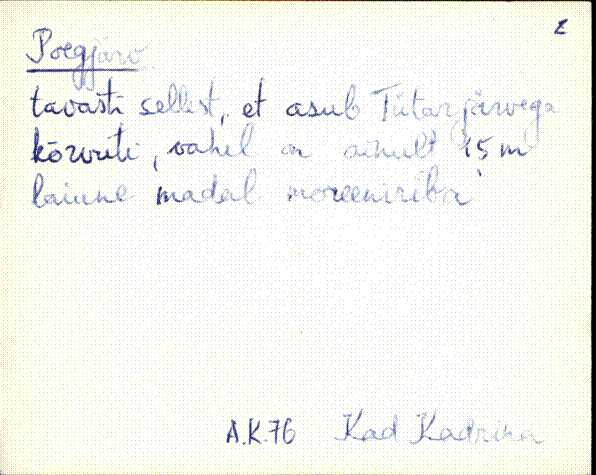 2
Poegjärv
tavasti sellest, et asub Tütarjärvega
kõrvuti, vahel on ainult 15 m
laiune madal moreeniriba
A.K.76 Kad Kadrina